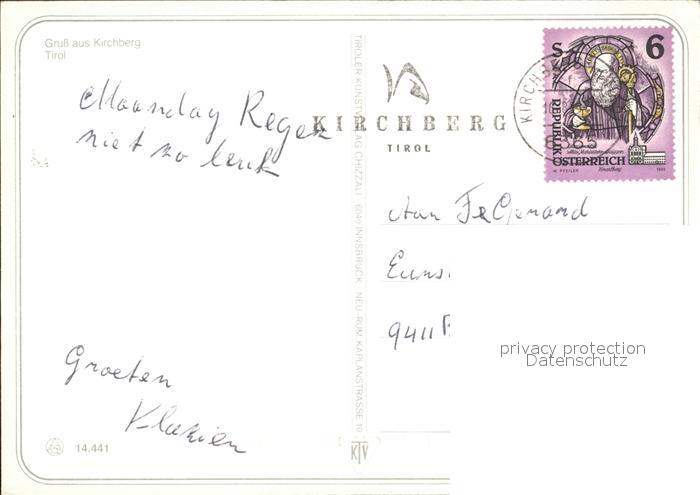 Gruß aus Kirchberg
Tirol
Maandag Regen
niet zo leuk
Groeten
Klazien
14.441
KTV
TIROLER KUNSTVERLAG CHIZZALI · 6040 INNSBRUCK · NEU-RUM, KAPLANSTRASSE 10
KIRCHBERG
TIROL
KIRCHB
6365
S 6
REPUBLIK
ÖSTERREICH
W. PFEILER
1993
Aan
9411
privacy protection
Datenschutz